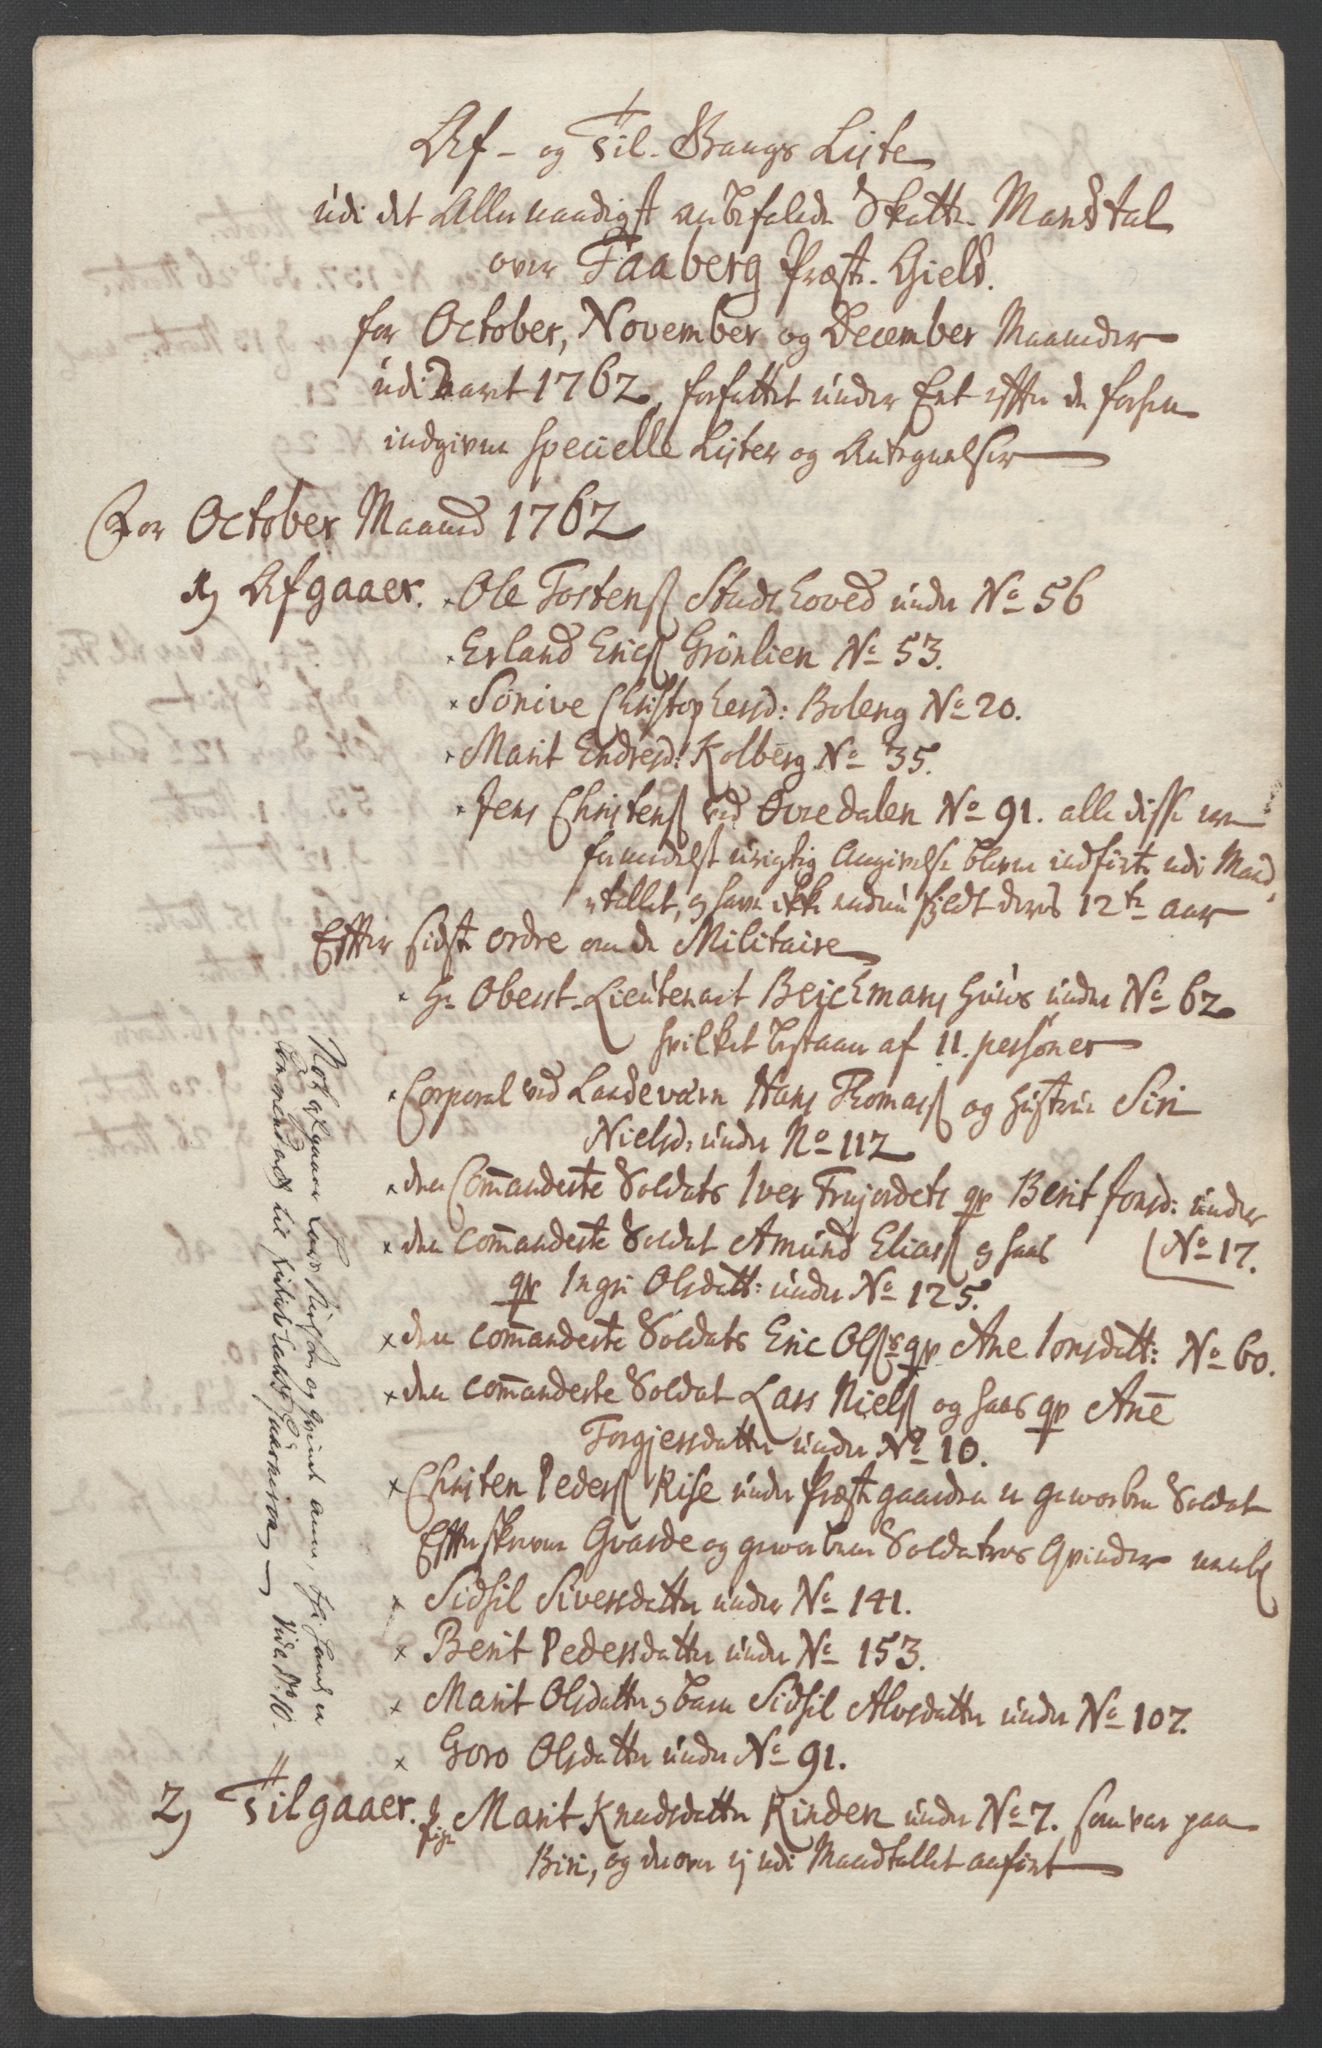 Af- og Til-Gangs Liste
udi det Allernaadigst anbefalede Skatte-Mandtal
over Faaberg Præste-Gield.
for October, November og December Maaneder
udi Aaret 1762, forfattet under Eet efter de forhen
indgivne specielle Lister og Antegnelser
For October Maaned 1762
1) Afgaaer. Ole Tostenß Studshoved under No 56
Erland Ericß Grönlien No 53.
Sönive Christophersd: Boleng No 20.
Marit Endresd: Kolberg No 35.
Jens Christenß ved Övredalen No 91. alle disse ere
formedelst urigtig Angivelse bleven indført udi Mand
tallet, og have ikke endnu fyldt deres 12te aar
Efter sidste ordre om de Militaire
Hr Oberst-Lieutenant Beichmans Huus under No 62
hvilket bestaaer af 11. personer
Corporal ved Landeværn Hans Thomasß og Hustrue Siri
Nielsd: under No 112
den Commanderte Soldats Iver Trujordets qv Berit Jonsd: under
No 17.
den Commanderte Soldat Amund Eliasß og hans
qv Ingri Olsdatt: under No 125.
den Commanderte Soldats Eric Olß qv Ane Jonsdatt: No 60.
den Commanderte Soldat Lars Nielß og hans qv Ane
Torgjersdatter under No 10.
Christen Pederß Rise under Præstegaarden er geworben Soldat
Efterskrevne Gvarde og geworbene Soldaters Qvinder nemlig
Sidsil Siversdatter under No 141.
Berit Pedersdatter under No 153.
Marit Olsdatter og barn Sidsil Alvsdatter under No 107.
Goro Olsdatter under No 91.
2) Tilgaaer. pige Marit Knudsdatter Rinden under No 7. som var paa
Biri, og derover ej udi Mandtallet anført
Nok afgaaer Lars Nielsen og qvinde Anne, thi hand er
Commenderet til Vide No 10.